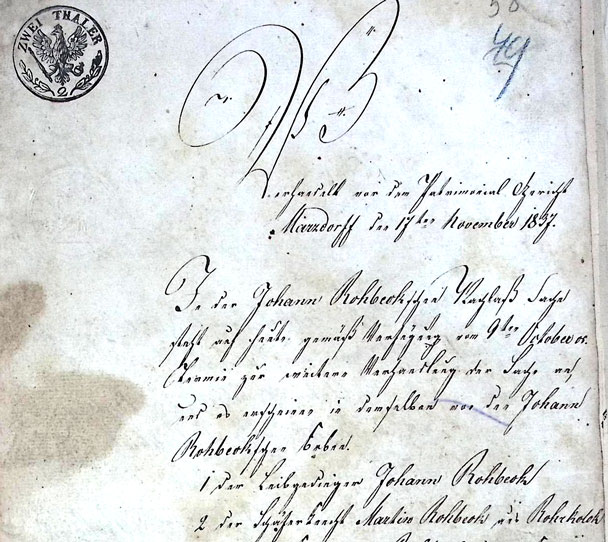 ZWEI THALER
2
50
49
Verhandelt vor dem Patrimonial Gericht
Märzdorff den 17ten November 1837.
In der Johann Rohbeckschen Nachlaß Sache
steht auf heute gemäß Verfügung vom 9ten October
Termin zur weitern Verhandlung der Sache an,
und es erscheinen in demselben von den Johann
Rohbeckschen Erben.
1 der Leibgedinger Johann Rohbeck
2 der Schäferknecht Martin Rohbeck aus